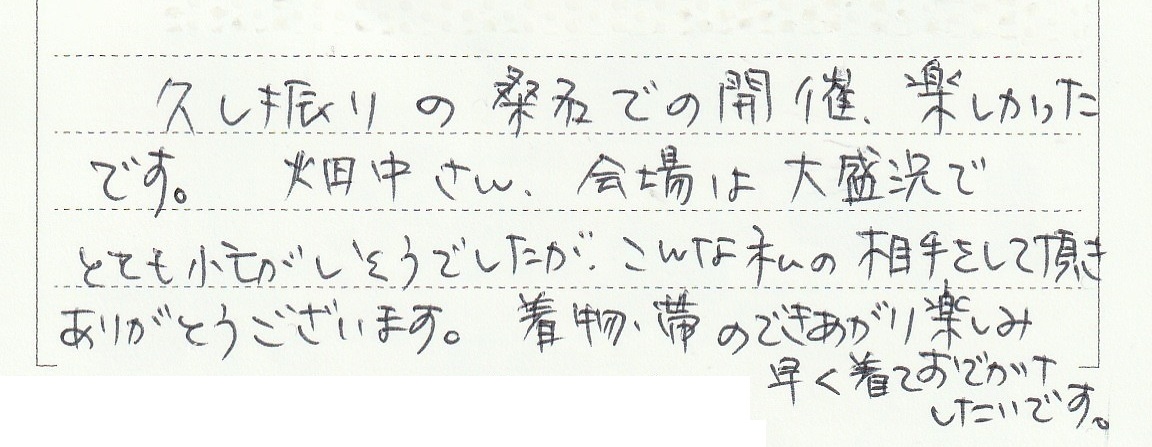 久し振りの桑名での開催、楽しかった
です。 畑中さん、会場は大盛況で
とても忙がしいそうでしたが、こんな私の相手をして頂き
ありがとうございます。 着物、帯のできあがり楽しみ
早く着ておでかけ
したいです。